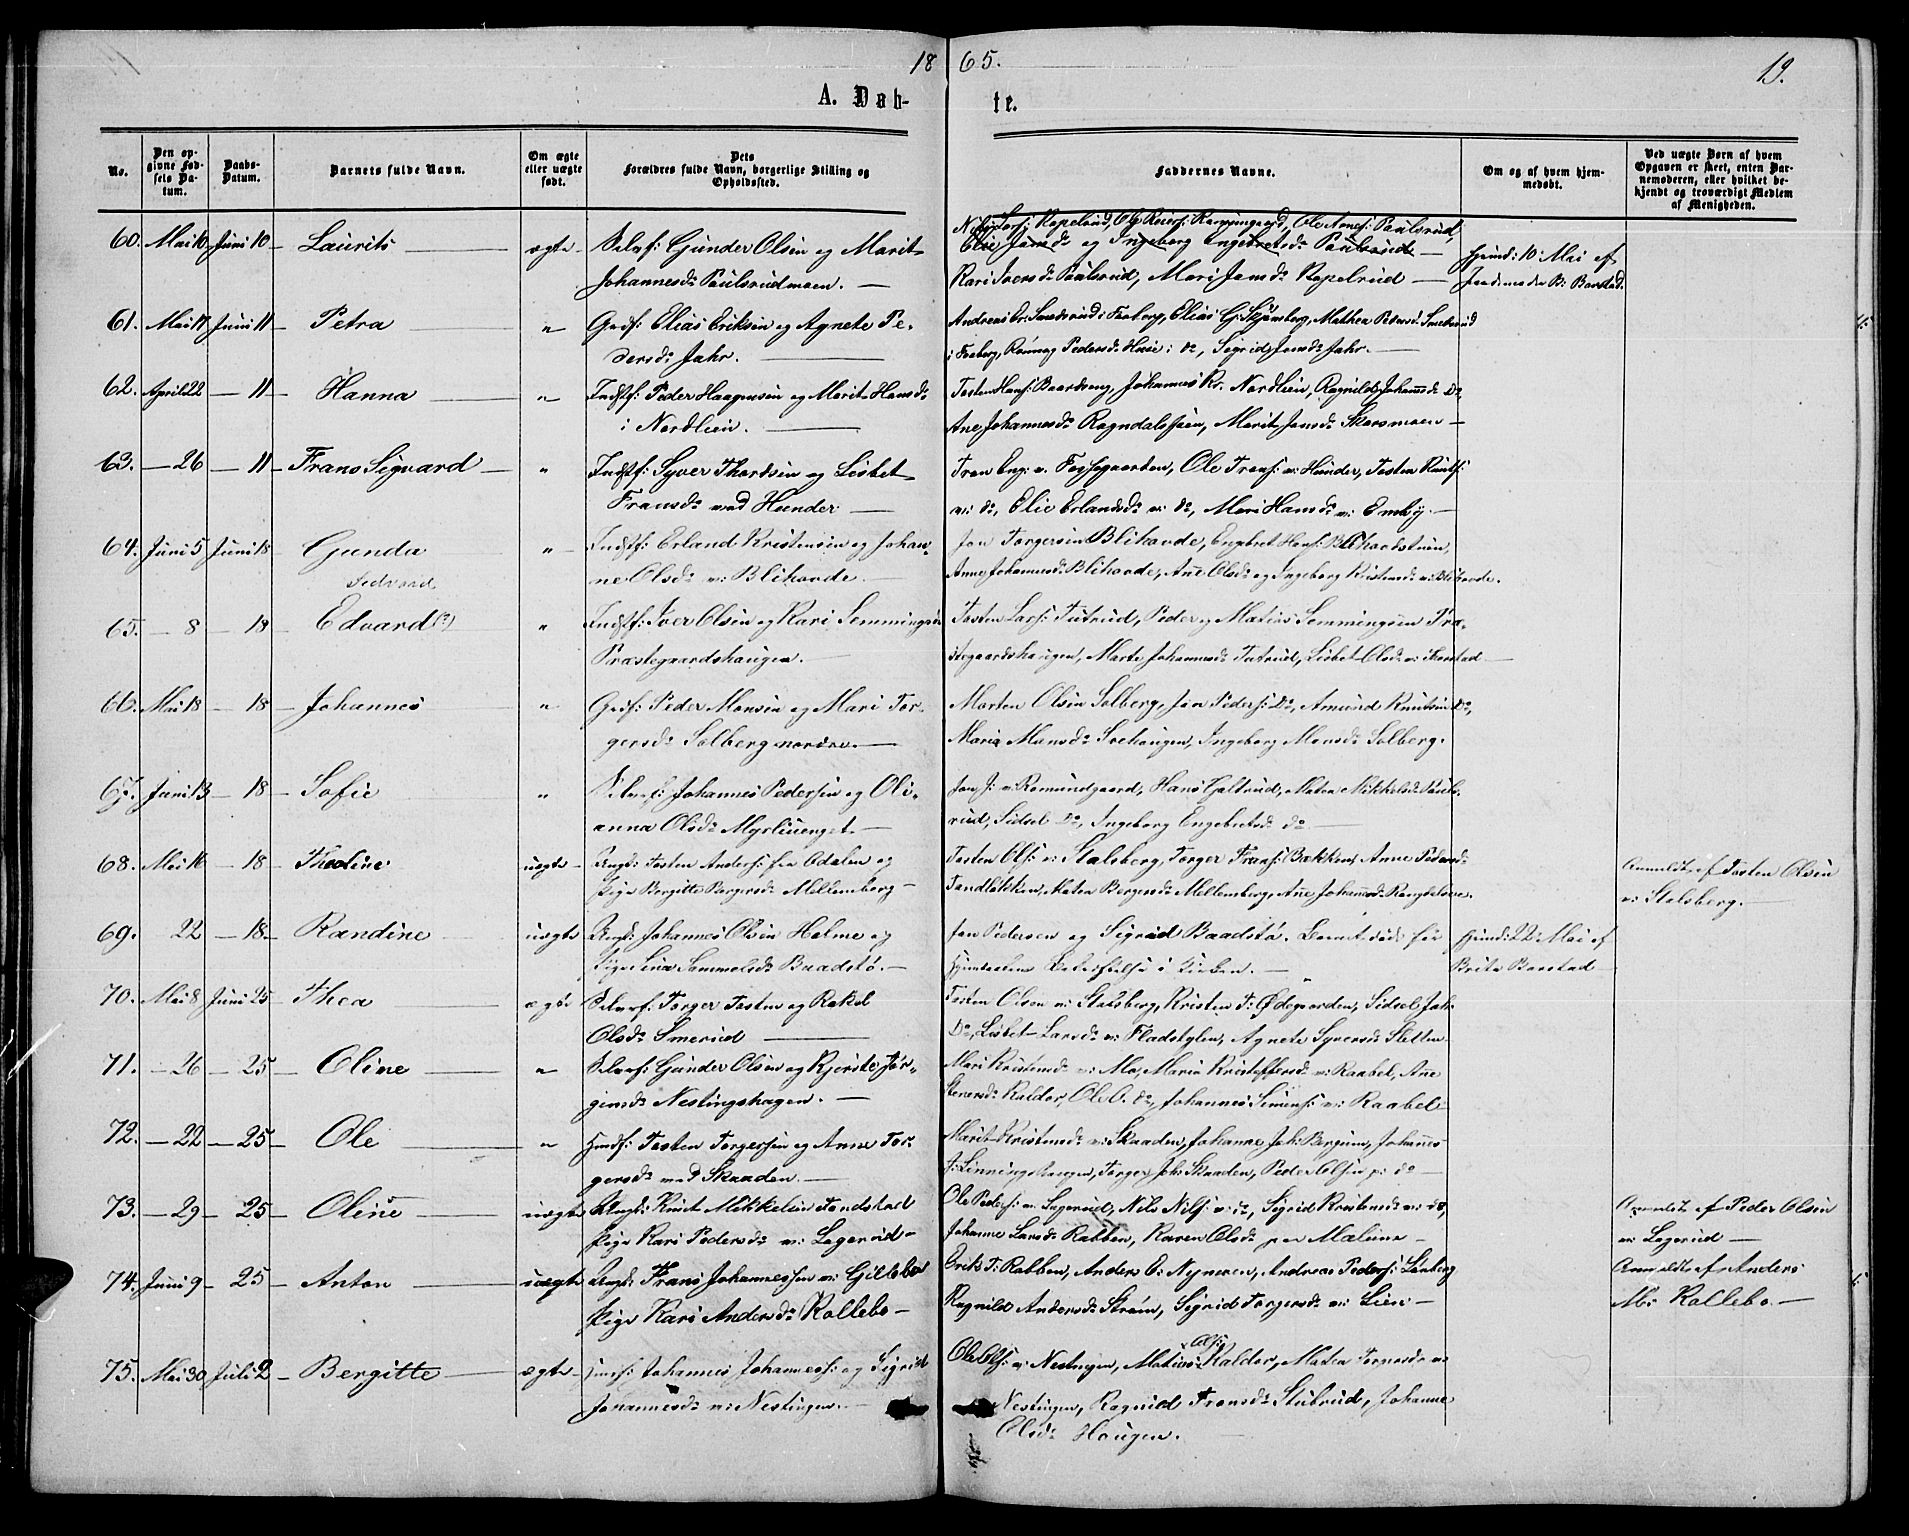 18 65. 19.
A. Døb- te.
No.
Den op-
givne Fød-
sels Da-
tum.
Daabs-
Datum.
Barnets fulde Navn.
Om ægte
eller uægte
født.
Dets
Forældres fulde Navn, borgerlige Stilling og
Opholdssted.
Faddernes Navne.
Om og af hvem hjem-
medøbt.
Ved uægte Børn af hvem
Opgaven er skeet, enten Bar-
nemoderen, eller hvilket be-
kjendt og troværdigt Medlem
af Menigheden.
60. Mai 10 Juni 10 Laurits ægte Selvf: Gunder Olsen og Marit
Johannesdr Paulsrudmoen.
Kopelrud, Ole Paulsrud,
Elie Jansdr og Ingeborg Engebretsdr Paulsrud
Kari Iversdr Paulsrud, Mari Jansdr Kopelrud
Hjemd: 10 Mai af
Jordemoder B: Barstad.
61. Mai 17 Juni 11 Petra " Grdf: Elias Eriksen og Agnete Pe-
dersdr Jahr.
Elias G. Skjønsberg, Mathea
i Faaberg, Rønnog Pedersdr Husie i do, Sigrid Jansdr Jahr.
62. April 22 — 11 Hanna " Indstf: Peder Haagensen og Marit Hansdr
i Nordlien.
Tosten Hans: Baardseng, Johannes Kr. Nordlien, Ragnild Johannesdr Do,
Ane Johannesdr Rogndalsjøen, Marit Jansdr Skarsmoen
63. — 26 — 11 Frans Sigvard " Indstf: Syver Thordsen og Lisbet
Fransdr ved Hunder
Ole Frans: v: Hunder, Tosten Knuts:
v: do, Elie Erlandsdr v: do, Mari Hansdr v: Enby.
64. Juni 5 Juni 18 Gunda " Indstf: Erland Kristensen og Johan-
ne Olsdr v: Blihovde.
Jon Torgersen Blihovde, Engebret Hans:
Anne Johannesdr Blihovde, Ane Olsdr og Ingeborg Kristensdr v: Blihovde.
Sedvard
65. — 8 — 18 Edvard (?) " Indstf: Iver Olsen og Kari Semmingsdr
Præstegaardshaugen.
Tosten Lars: Tutrud, Peder og Matias Semmingsen Præ-
stegaardshaugen, Marte Johannesdr Tutrud, Lisbet Olsdr v:
66. Mai 18 — 18 Johannes " Grdf: Peder Monsen og Mari Tor-
gersdr Solberg nordre.
Morten Olsen Solberg, Jon Peders: Do, Amund Knutsen Do,
Maria Monsdr Ingeborg Monsdr Solberg.
67. Juni 13 — 18 Sofie " Selvf: Johannes Pedersen og Oli-
anna Olsdr Myrliuenget.
Jon J: v: Romundgaard, Hans Gjeltrud, Matea Mikkelsdr Pauls-
rud, Sidsel Do, Ingeborg Engebretsdr do
68. Mai 16 — 18 Theoline uægte Ungk: Tosten Anders: fra Odalen og
Pige Bergitte Bergersdr Mellemberg
Tosten Ols: v: Stalsberg, Torger Frans: Bækken, Anne Pedersdr
Tandløkken, Matea Bergersdr Mellemberg, Ane Johannesdr
Anmeldt af Tosten Olsen
v: Stalsberg.
69. 22 — 18 Randine uægte Ungk: Johannes Olsen Holme og
Pige Lina Sammelsdr Baadstø.
Jon Pedersen og Sigrid Baadstø. Barnet døde før
Hjemdaabens Bekræftelse i Kirken.
Hjemd: 22 Mai af
Brite Barstad
70. Mai 8 Juni 25 Thea ægte Selvf: Torger Tosten og Rakel
Olsdr Smerud
Tosten Olsen v: Stalsberg, Kristen T: Ødegaarden, Sidsel Joh:
Do, Lisbet Larsdr v: Fladstylen, Agnete Syversdr Sletten
71. — 26 — 25 Oline " Selvf: Gunder Olsen og Kjerste Jør-
gensdr Nestingshagen.
Mari Kristensdr v: Mo, Maria Kristoffersdr v: Raabel, Ane
Stenersdr Kaldor, Ole O. do, Johannes Simens: v: Raabel
72. — 22 — 25 Ole " Husf: Tosten Torgersen og Anne Tor-
gersdr ved Skaaden.
Marit Kristensdr v: Skaaden, Johanne Joh: Bergum, Johannes
J: Linningshaugen, Torger Joh: Skaaden, Peder Olsen v: do
73. — 29 — 25 Oline uægte Ungk: Knut Mikkelsen Tandstad
Pige Kari Pedersdr v: Lagerud
Ole Peders: v: Lagerud, Nils Nils: v: do, Sigrid Kristensdr v: do,
Johanne Larsdr Rabben, Karen Olsdr paa Maline
Anmeldt af Peder Olsen
v: Lagerud
74. Juni 9 — 25 Anton uægte Ungk: Frans Johannessen v: Gillebo
Pige Kari Andersdr Kollebo
Erik T: Rabben, Anders E: Nymoen, Andreas Peders: Lønberg
Ragnild Andersdr Strøm, Sigrid Torgersdr v: Lien
Anmeldt af Anders
M: Kollebo.
75. Mai 30 Juli 2 Bergitte ægte Husf: Johannes Johannes: og Sigrid
Johannesdr v: Nestingen.
Ole Ols: v: Nestingen, Matias Ols: Kaldor, Matea Torgersdr v:
Nestingen, Ragnild Fransdr Stubrud, Johanne
Olsdr Haugen.